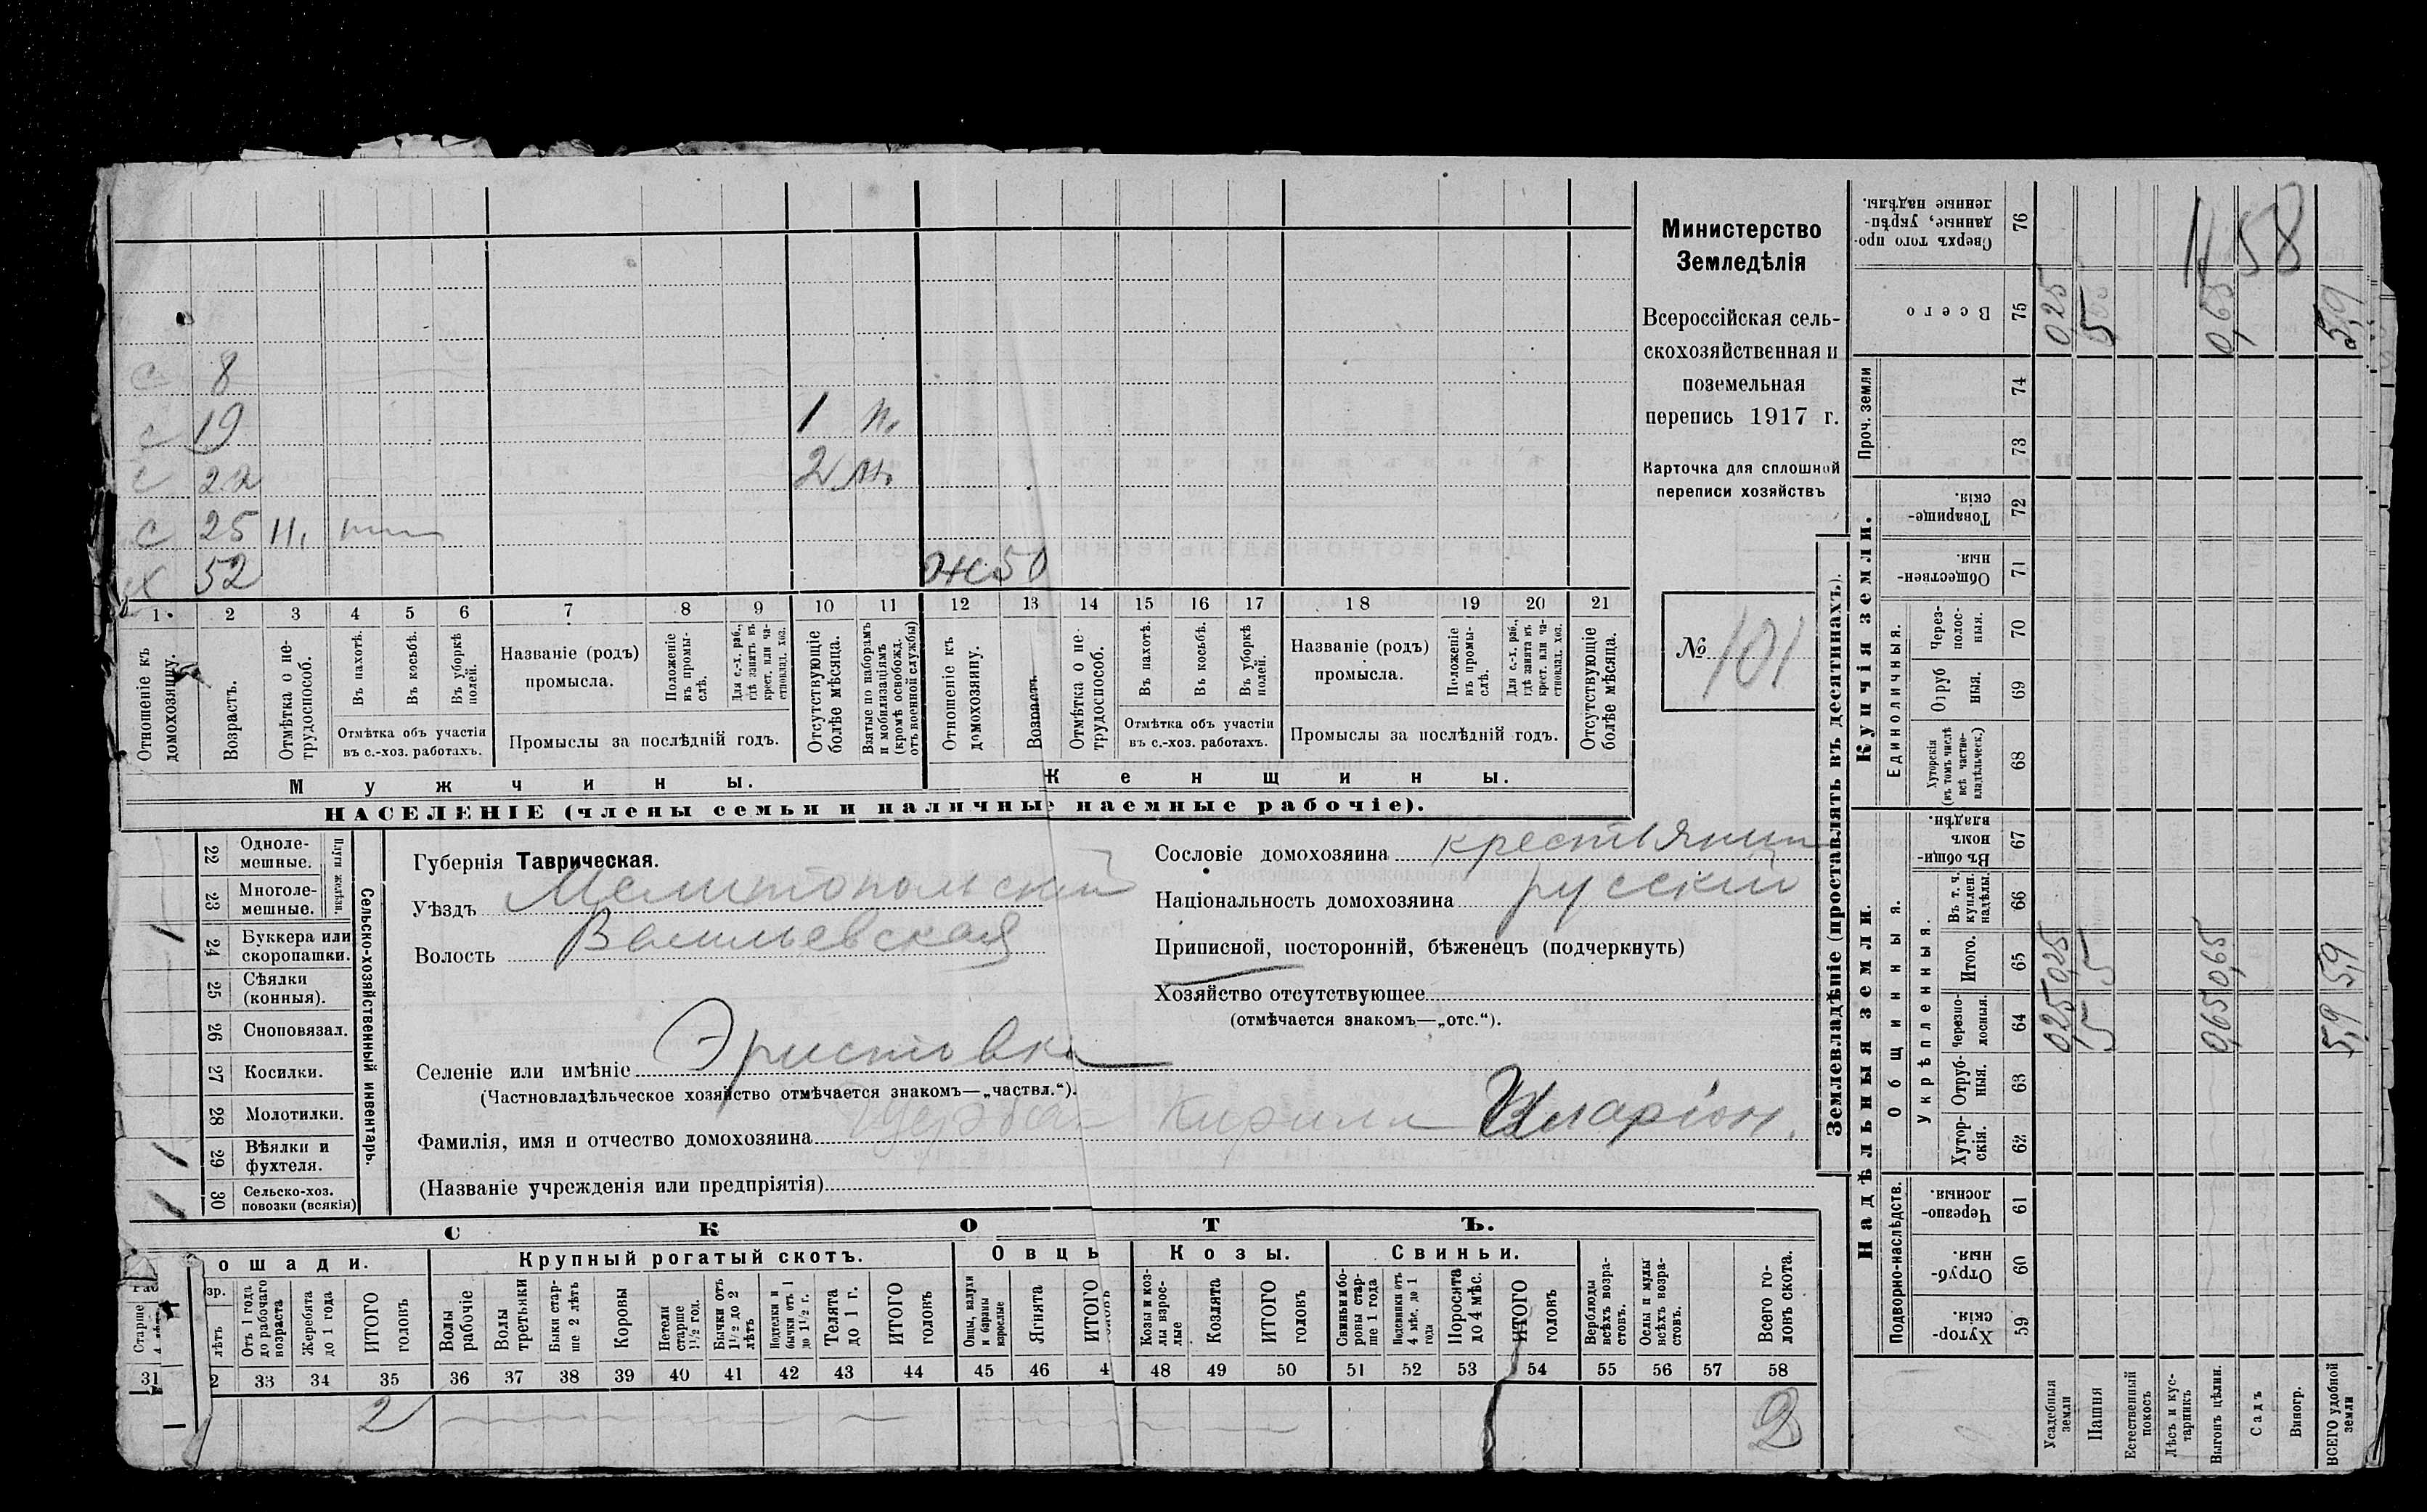 с 8
с 19 1 м.
с 22 2 м.
с 25 н.
х 52 ж 50
1. 2 3 4 5 6 7 8 9 10 11 12 13 14 15 16 17 18 19 20 21
Отношеніе къ домохозяину.
Возрастъ.
Отмѣтка о не-трудоспособ.
Въ пахотѣ.
Въ косьбѣ.
Въ уборкѣ полей.
Отмѣтка объ участіи
въ с.-хоз. работахъ.
Названіе (родъ)
промысла.
Положеніе въ промы-слѣ.
Для с.-х. раб., гдѣ занятъ въ крест. или ча-стновлад. хоз.
Промыслы за послѣдній годъ.
Отсутствующіе болѣе мѣсяца.
Взятые по наборамъ и мобилизаціямъ (кромѣ освобожд. отъ военной службы)
Отношеніе къ домохозяину.
Возрастъ
Отмѣтка о не-трудоспособ.
Въ пахотѣ.
Въ косьбѣ.
Въ уборкѣ полей.
Отмѣтка объ участіи
въ с.-хоз. работахъ.
Названіе (родъ)
промысла.
Положеніе въ промы-слѣ.
Для с.-х. раб., гдѣ занята въ крест. или ча-стновлад. хоз.
Промыслы за послѣдній годъ.
Отсутствующіе болѣе мѣсяца.
Мужчины.
Женщины.
НАСЕЛЕНІЕ (члены семьи и наличные наемные рабочіе).
Министерство
Земледѣлія
Всероссійская сель-
скохозяйственная и
поземельная
перепись 1917 г.
Карточка для сплошной
переписи хозяйствъ
№ 101
22 Одноле-мешные.
23 Многоле-мешные.
Плуги желѣзн.
24 Буккера или скоропашки.
25 Сѣялки (конныя).
26 Сноповязал.
27 Косилки.
28 Молотилки.
29 Вѣялки и фухтеля.
30 Сельско-хоз. повозки (всякія)
Сельско-хозяйственный инвентарь.
Губернія Таврическая.
Уѣздъ Мелитопольский
Волость Васильевская
Селеніе или имѣніе Эристовка
(Частновладѣльческое хозяйство отмѣчается знакомъ—„частвл.“).
Фамилія, имя и отчество домохозяина Щерба Кирилл Иларіон.
(Названіе учрежденія или предпріятія)
Сословіе домохозяина крестьянин
Національность домохозяина русский
Приписной, посторонній, бѣженецъ (подчеркнуть)
Хозяйство отсутствующее
(отмѣчается знакомъ—„отс.“).
СКОТЪ.
ошади.
Крупный рогатый скотъ.
Овцы
Козы.
Свиньи.
Старше
лѣтъ
Отъ 1 года до рабочаго возраста
Жеребята до 1 года
ИТОГО головъ
Волы рабочіе
Волы третьяки
Быки стар-ше 2 лѣтъ
Коровы
Нетели старше 1½ год.
Бычки отъ 1½ до 2 лѣтъ
Подтелки и бычки отъ 1 до 1½ г.
Телята до 1 г.
ИТОГО головъ
Овцы, валухи и бараны взрослые
Ягнята
ИТОГО головъ
Козы и коз-лы взрос-лые
Козлята
ИТОГО головъ
Свиньи и бо-ровы стар-ше 1 года
Подсвинки отъ 4 мѣс. до 1 года
Поросята до 4 мѣс.
ИТОГО головъ
Верблюды всѣхъ возра-стовъ.
Ослы и мулы всѣхъ возра-стовъ.
Всего го-ловъ скота.
31 2 33 34 35 36 37 38 39 40 41 42 43 44 45 46 4 48 49 50 51 52 53 54 55 56 57 58
2 2
Землевладѣніе (проставлять въ десятинахъ).
Надѣльныя земли.
Купчія земли.
Проч. земли
Подворно-наслѣдств.
Общинныя.
Укрѣпленныя.
Единоличныя.
Хутор-скія. 59
Отруб-ныя 60
Черезпо-лосныя. 61
Хутор-скія. 62
Отруб-ныя. 63
Черезпо-лосныя. 64
Итого. 65
Въ т. ч. куплен. надѣлы. 66
Въ общи-номъ владѣн. 67
Хуторскія (въ томъ числѣ всѣ частно-владѣльческ.) 68
Отруб ныя. 69
Через-полос-ныя. 70
Обществен-ныя 71
Товарище-скія. 72
73
74
Всего 75
Сверхъ того про-данные, укрѣп-ленные надѣлы. 76
Усадебныя земли 0,25 0,25 025
Пашня 5 5 5
Естественный покосъ
Лѣсъ и кус-тарникъ
Выгонъ цѣлин. 0,65 0,65 0,65
Садъ
Виногр.
ВСЕГО удобной земли 5,9 5,9 5,9
58